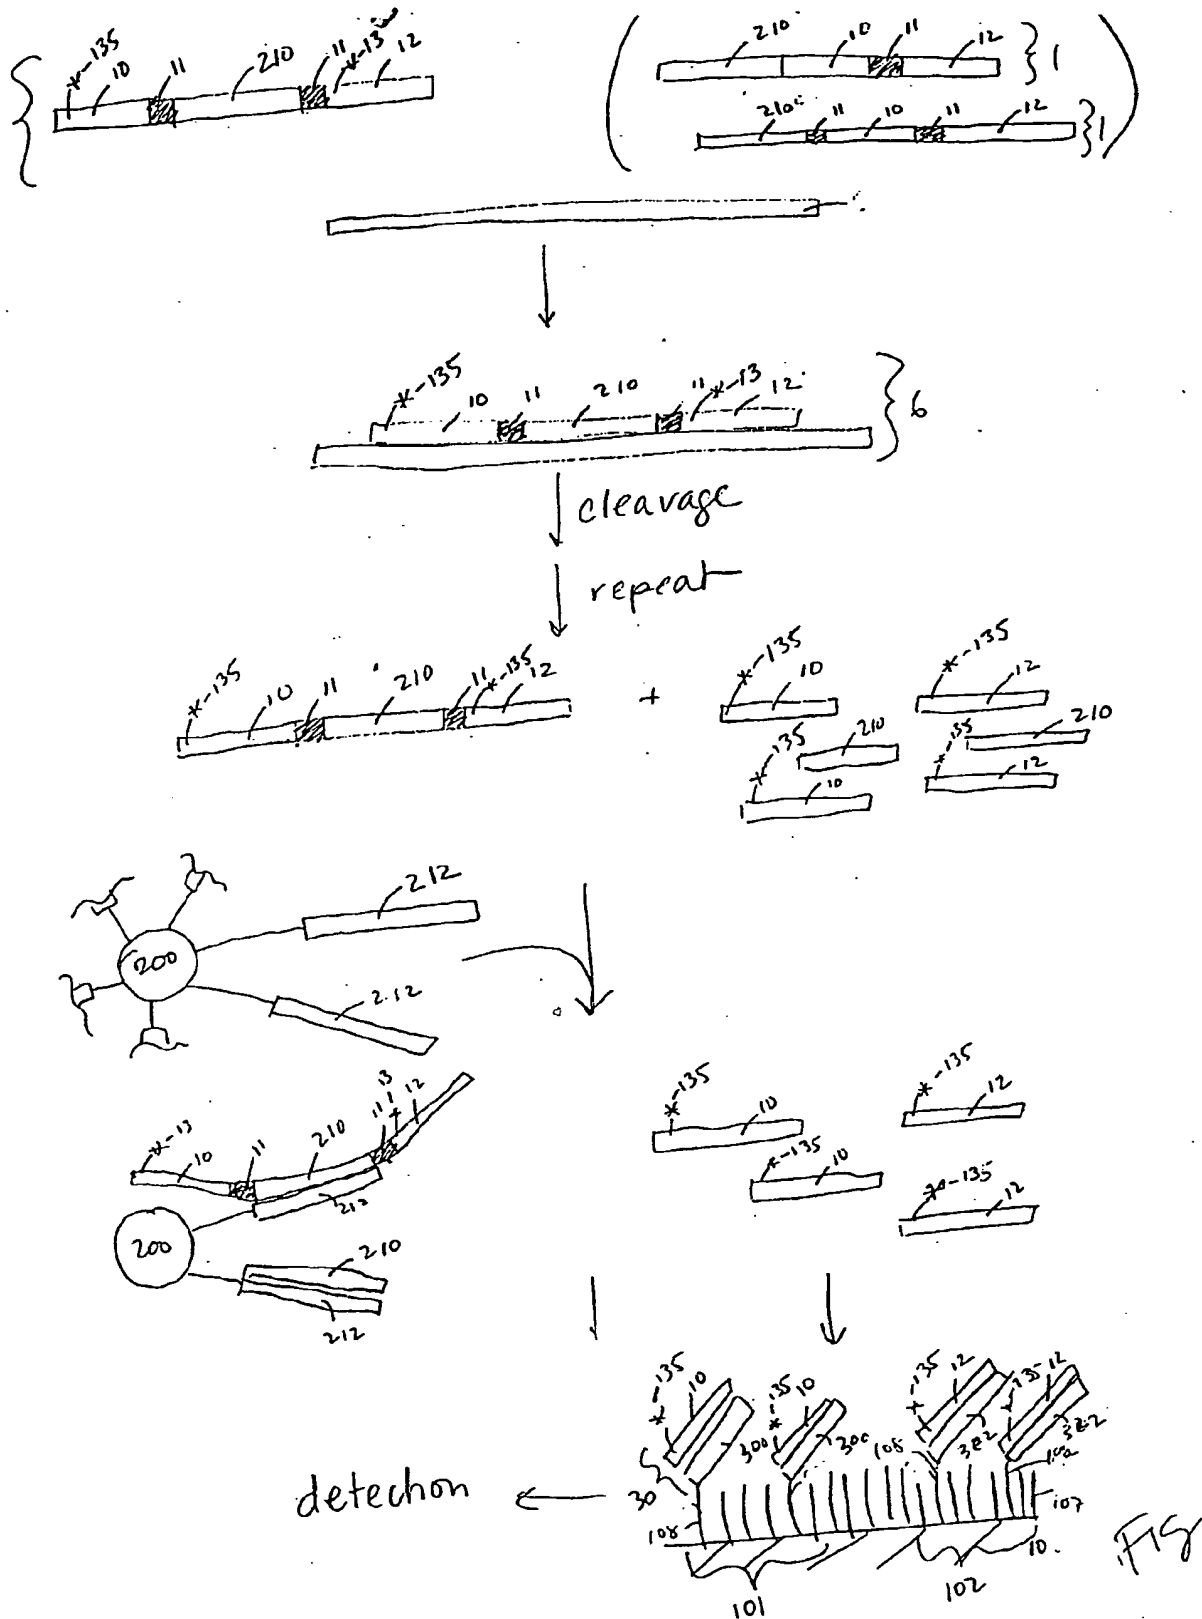 *-135 10 11 210 11 *-13 12
210 10 11 12 } 1
210 11 10 11 12 } 1
*-135 10 11 210 11 *-13 12 } 6
cleavage
repeat
*-135 10 11 210 11 *-135 12 + *-135 10 *-135 12
*-135 210 *-135 210
10 12
200 212
212
*-13 10 11 210 11 13 12
212
200 210
212
*-135 10 *-135 12
*-135 10 *-135 12
*-135 10 *-135 10 *-135 12 *-135 12
300 300 108 322 322
detection 30 108 107
101 102 10.
FIG